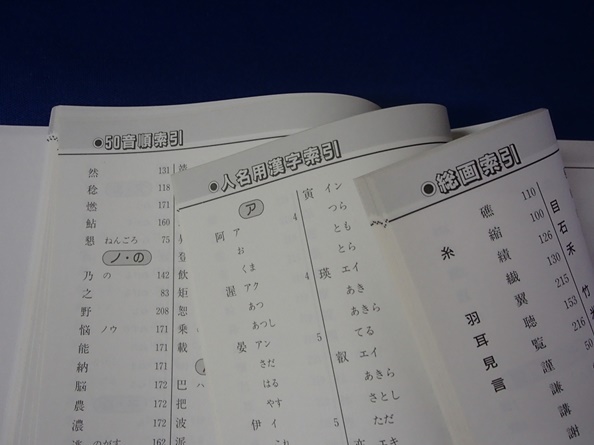 ●50音順索引
然 131
稔 118
燃 171
鮎 160
懇 ねんごろ 75
ノ・の
乃 の 142
之 83
野 208
悩 ノウ 171
能 171
納 171
脳 172
農 172
濃 172
162
飲
矩
恕
乗
載
巴
把
波
派
●人名用漢字索引
ア
阿 ア 4
お
くま
渥 アク 4
あつ
あつし
晏 アン 5
さだ
はる
やす
伊 イ 5
これ
寅 イン
つら
とも
とら
瑛 エイ
あき
あきら
てる
叡 エイ
あきら
さとし
ただ
亦 エキ
●総画索引
礁 110
糸 縮 100
績 126
繊 130
羽 翼 215
耳 聴 153
見 覧 216
言 謹 50
謙
講
謝
目
石
禾
竹